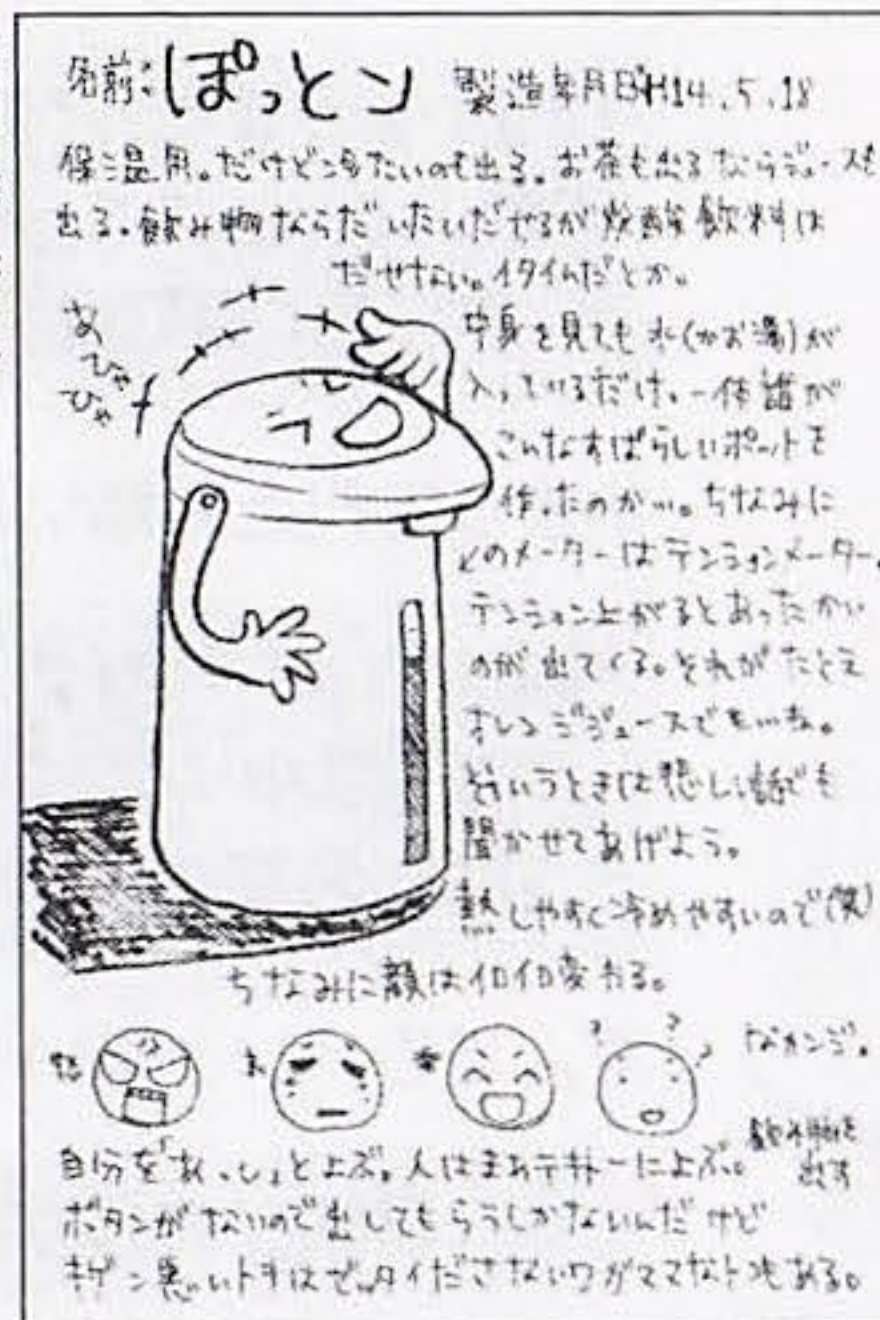 名前:ぽっとン 製造年月日H14.5.18
保温用。だけど冷たいのも出る。お茶も出るならジュースも
出る。飲み物ならだいたいだせるが炭酸飲料は
だせない。イタイんだとか。
あひゃひゃ
中身を見ても水(かお湯)が
入っているだけ。一体誰が
こんなすばらしいポットを
作ったのかい。ちなみに
このメーターはテンションメーター。
テンション上がるとあったかい
のが出てくる。それがたとえ
オレンジジュースでもいね。
そういうときは悲しい話でも
聞かせてあげよう。
熱しやすく冷めやすいので(笑)
ちなみに顔はイロイロ変わる。
怒 哀 楽 ? ? ? なカンジ。
自分を「あっし」とよぶ。人はまあテキトーによぶ。
飲み物を出す
ボタンがないので出してもらうしかないんだけど
キゲン悪いトキはゼッタイださないワガママなトコもある。